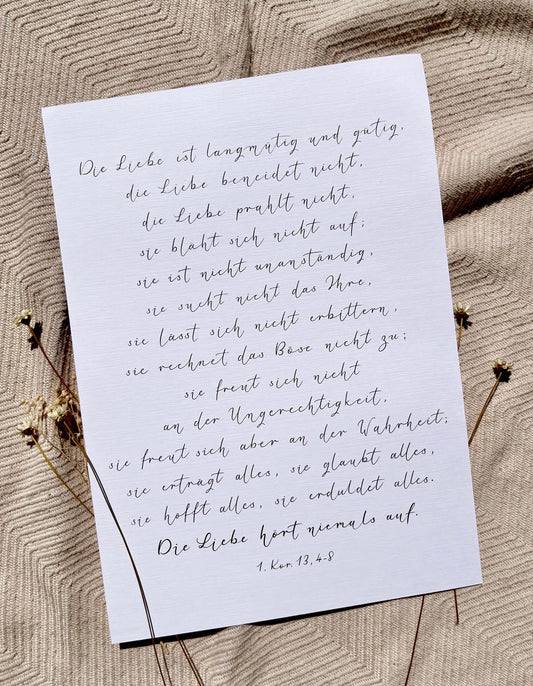 Die Liebe ist langmütig und gütig,
die Liebe beneidet nicht,
die Liebe prahlt nicht,
sie bläht sich nicht auf;
sie ist nicht unanständig,
sie sucht nicht das Ihre,
sie lässt sich nicht erbittern,
sie rechnet das Böse nicht zu;
sie freut sich nicht
an der Ungerechtigkeit,
sie freut sich aber an der Wahrheit;
sie erträgt alles, sie glaubt alles,
sie hofft alles, sie erduldet alles.
Die Liebe hört niemals auf.
1. Kor. 13, 4-8